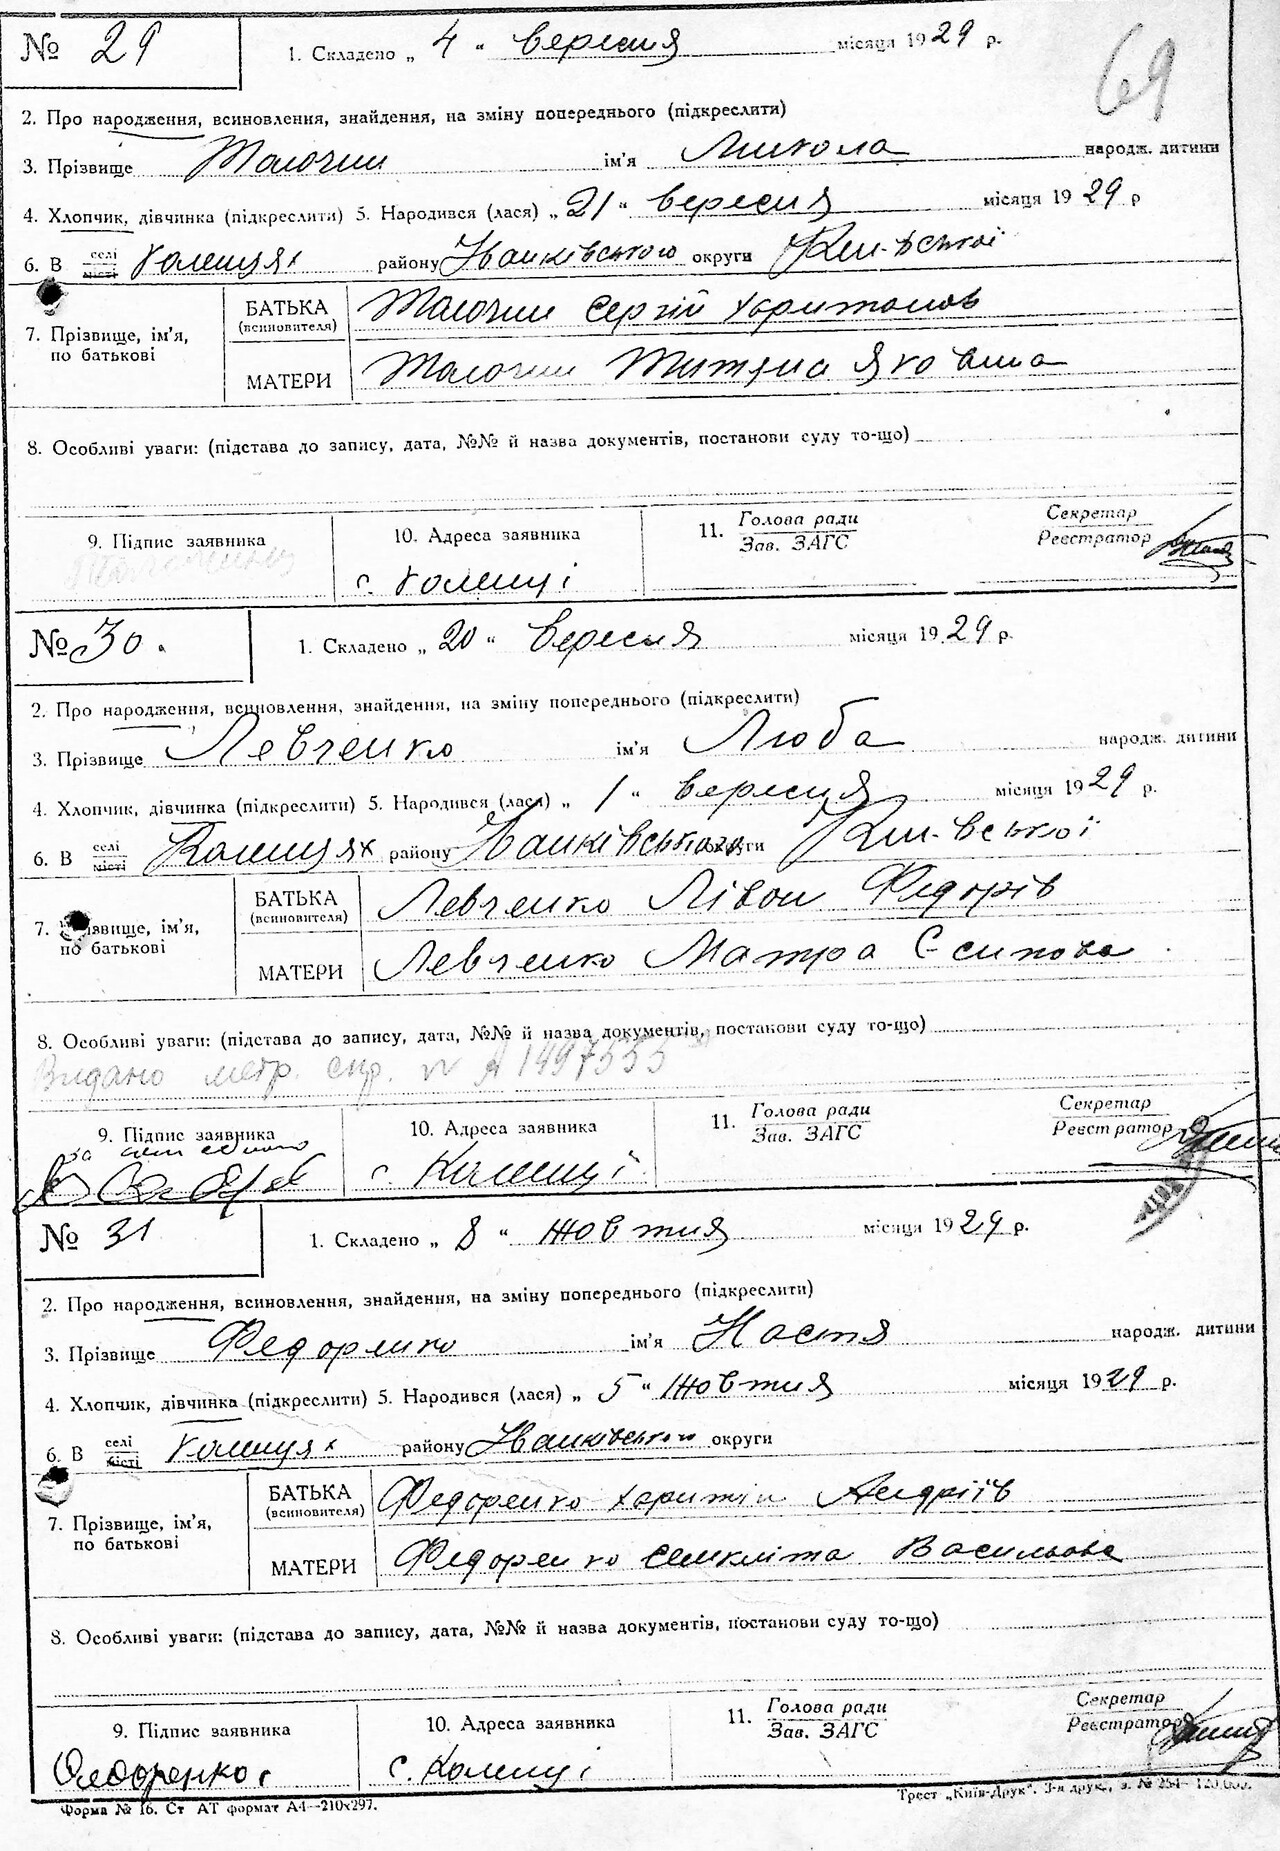 69
№ 29 1. Складено „ 4 “ вересня місяця 1929 р.
2. Про народження, всиновлення, знайдення, на зміну попереднього (підкреслити)
3. Прізвище Толочин ім’я Микола народж. дитини
4. Хлопчик, дівчинка (підкреслити) 5. Народився (лася) „ 21 “ вересня місяця 1929 р
6. В селі місті Коленцях району Іванківського округи Киівської
7. Прізвище, ім’я, по батькові
БАТЬКА (всиновителя) Толочин Сергій Харитонов
МАТЕРИ Толочин Титяна Яковлна
8. Особливі уваги: (підстава до запису, дата, №№ й назва документів, постанови суду то-що)
9. Підпис заявника 10. Адреса заявника 11. Голова ради Зав. ЗАГС Секретар Реєстратор
с. Коленці
№ 30. 1. Складено „ 20 “ вересня місяця 1929 р.
2. Про народження, всиновлення, знайдення, на зміну попереднього (підкреслити)
3. Прізвище Левченко ім’я Люба народж. дитини
4. Хлопчик, дівчинка (підкреслити) 5. Народився (лася) „ 1 “ вересня місяця 1929 р.
6. В селі місті Коленцях району Іванківського округи Киівської
7. Прізвище, ім’я, по батькові
БАТЬКА (всиновителя) Левченко Лівон Федорів
МАТЕРИ Левченко Мотря Єсипова
8. Особливі уваги: (підстава до запису, дата, №№ й назва документів, постанови суду то-що)
Видано метр. скр. № А 1497555
9. Підпис заявника 10. Адреса заявника 11. Голова ради Зав. ЗАГС Секретар Реєстратор
за с. Коленці
№ 31 1. Складено „ 8 “ жовтня місяця 1929 р.
2. Про народження, всиновлення, знайдення, на зміну попереднього (підкреслити)
3. Прізвище Федоренко ім’я Настя народж. дитини
4. Хлопчик, дівчинка (підкреслити) 5. Народився (лася) „ 5 “ жовтня місяця 1929 р.
6. В селі місті Коленцях району Іванківського округи
7. Прізвище, ім’я, по батькові
БАТЬКА (всиновителя) Федоренко Харитін Андріїв
МАТЕРИ Федоренко Синклита Васильова
8. Особливі уваги: (підстава до запису, дата, №№ й назва документів, постанови суду то-що)
9. Підпис заявника 10. Адреса заявника 11. Голова ради Зав. ЗАГС Секретар Реєстратор
Федоренко с. Коленці
Форма № 16. Ст АТ формат А4—210х297. Трест „Київ-Друк“. 3-я друк., з. № 254—120.000.